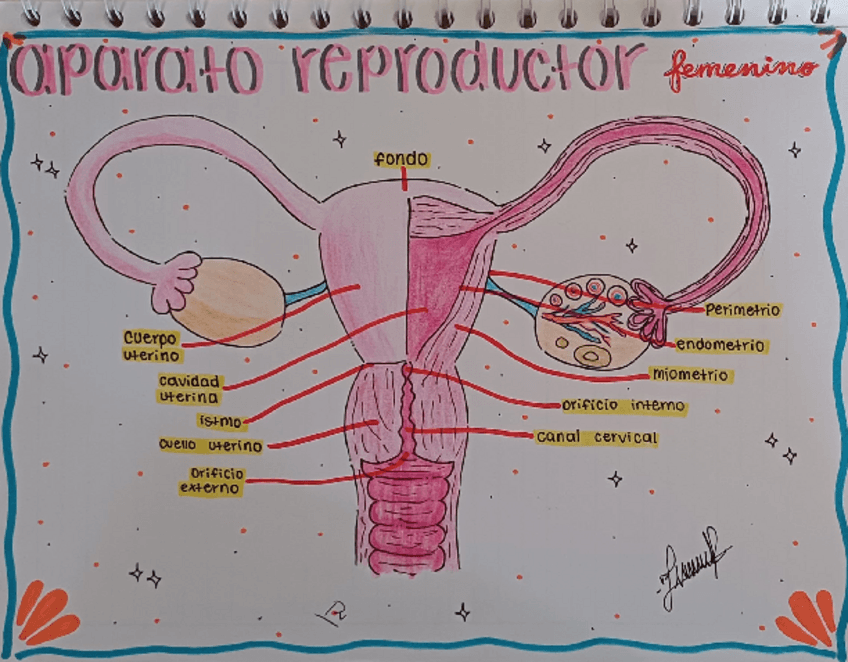 aparato reproductor femenino
fondo
cuerpo
uterino
cavidad
uterina
istmo
cuello uterino
orificio
externo
perimetrio
endometrio
miometrio
orificio interno
canal cervical